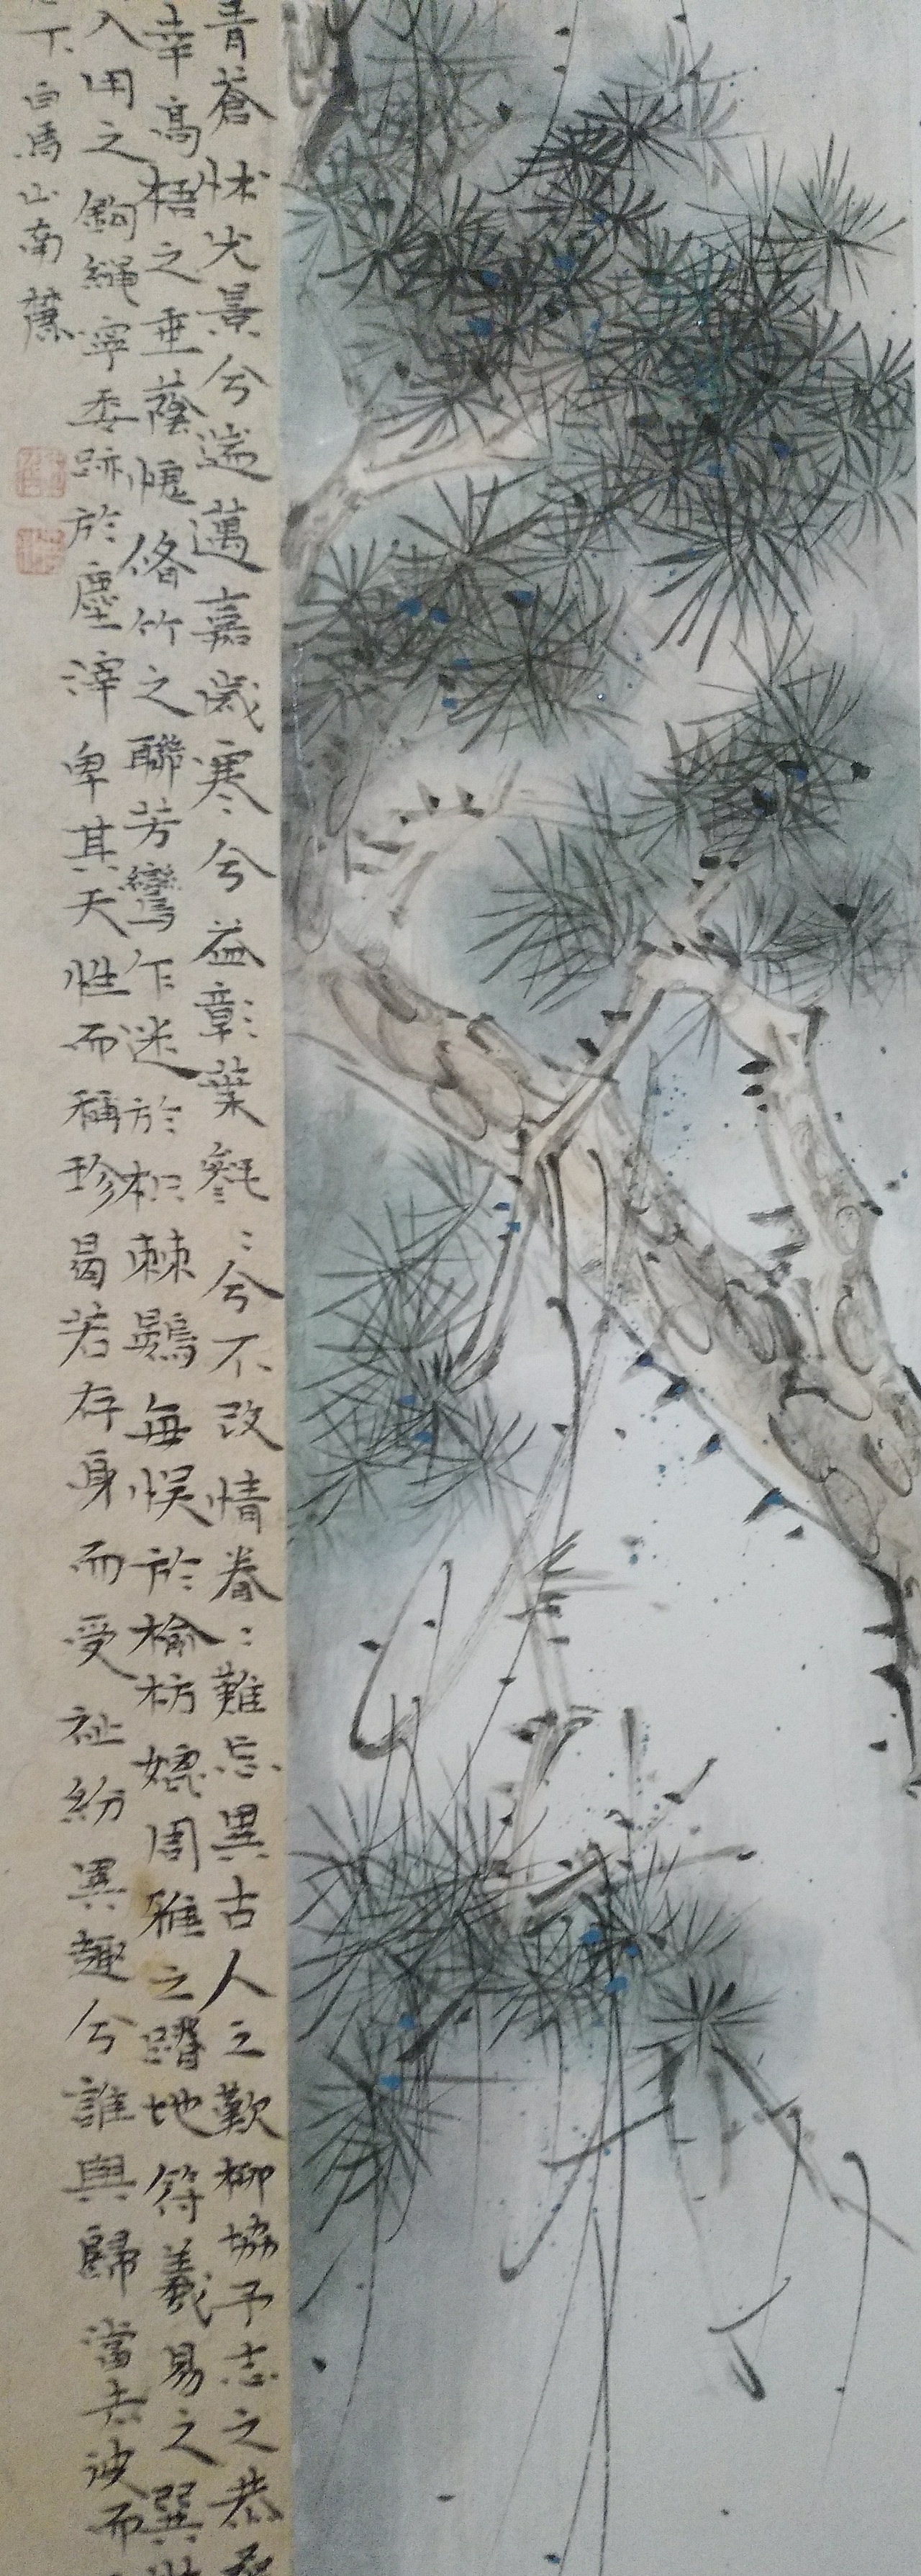 青蒼怵火景兮遄邁嘉歲寒兮益彰葉毿〻兮不改情眷〻難忘異古人之歎柳協予志之恭
幸高梧之垂蔭愧脩竹之聯芳鸞乍迷於枳棘鷃每悞於榆枋媿周雅之蹐地符羲易之巽
入用之鉤繩寧委跡於塵滓卑其天性而稱珍曷若存身而受祉紛異趣兮誰與歸當去彼而
下白馬山南薕